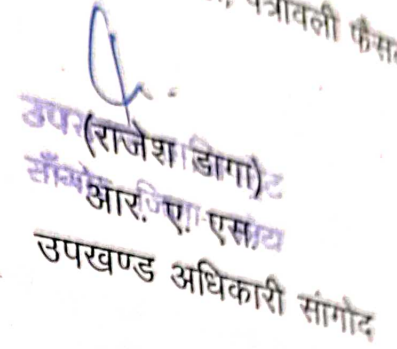 पत्रावली
(राजेश डागा)
आर. ए. एस.
उपखण्ड अधिकारी सांगोद